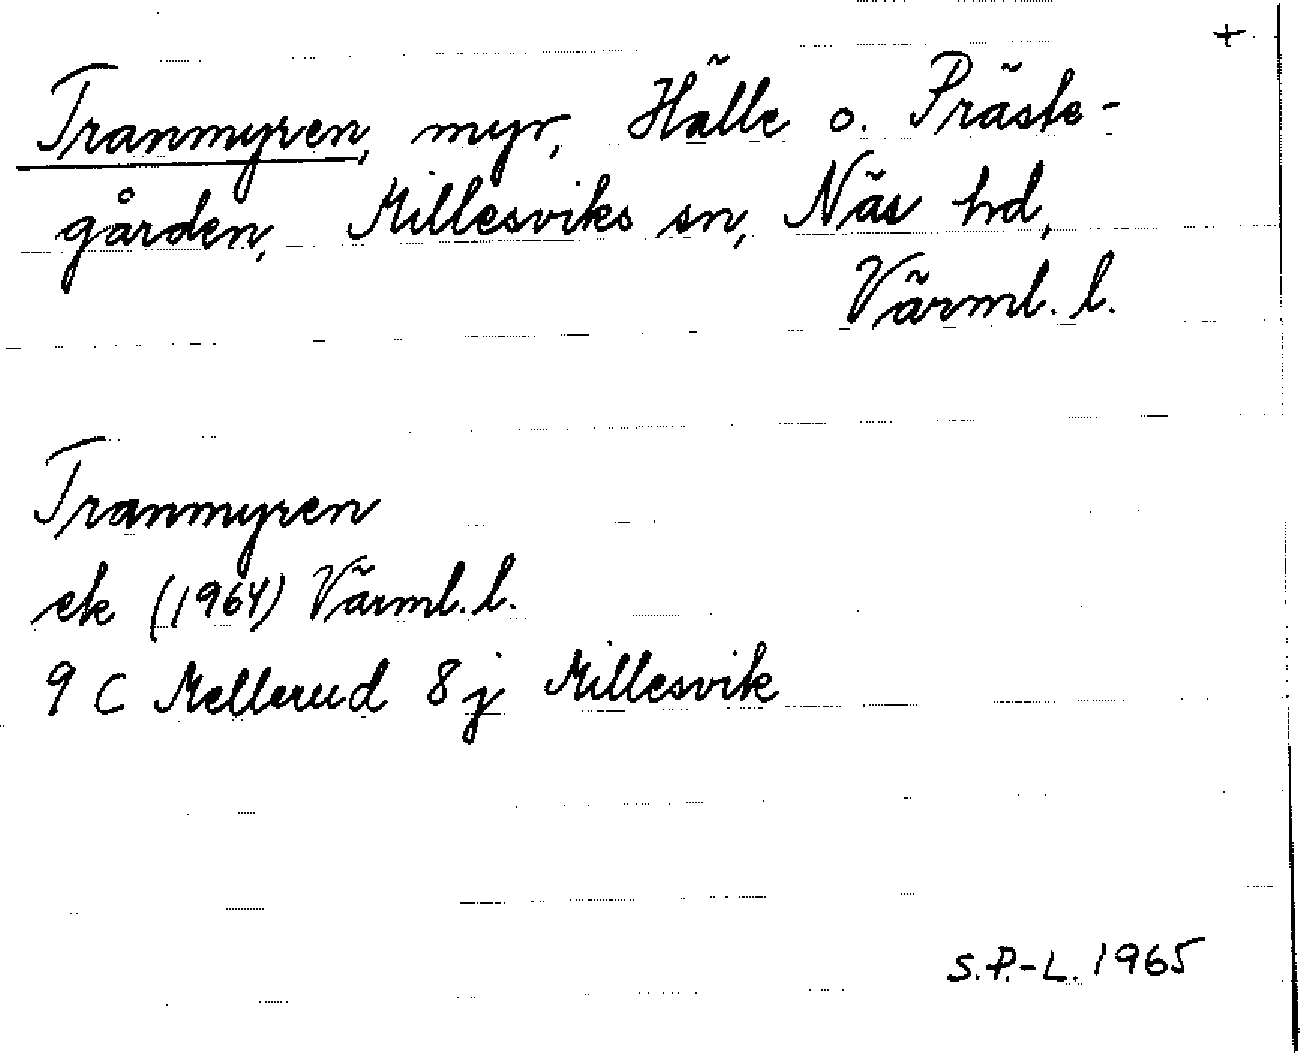 +
Tranmyren, myr, Hälle o. Präste-
gården, Millesviks sn, Näs hd,
Värml. l.
Tranmyren
ek (1964) Värml. l.
9 C Mellerud 8 j Millesvik
S.P.-L. 1965